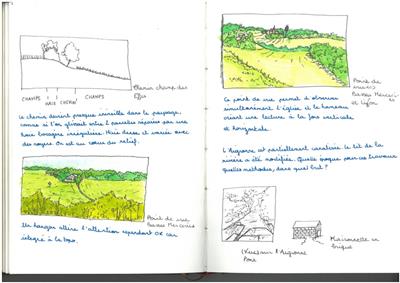 Chemin champ des
CHAMPS HAIE CHEMIN CHAMPS
Le chemin devient presque invisible dans le paysage,
comme si l'on glissait entre 2 parcelles séparées par une
haie bocagère irrégulière. Haie dense et variée avec
des noyers. On est au creux du relief.
Point de vue
Basses Mercerie
Un hangar attire l'attention cependant OK car
intégré à la topo.
Point de
vue
Basses Mercerie
et Lijon
Ce point de vue permet d'observer
simultanément l'église et le hameau
créant une lecture à la fois verticale
et horizontale.
L'Auzonne est partiellement canalisée, le lit de la
rivière a été modifié. Quelle époque pour ces travaux
quelles méthodes, dans quel but ?
sur l'Auzonne
Pont
Maisonnette en
brique